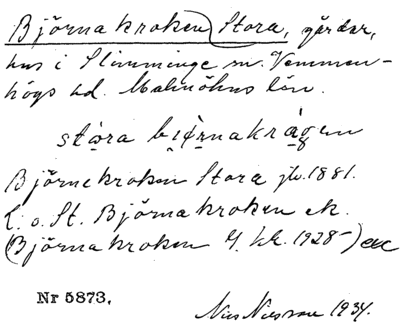 Björnakroken Stora, gårdar,
hus i Slimminge sn. Vemmen-
högs hd. Malmöhus län.
stora biörnakrågen
Björnekroken Stora jb. 1881.
L. o. St. Björnakroken ek.
(Björnakroken 1928)
Nr 5873.
Nils Nilsson 1934.